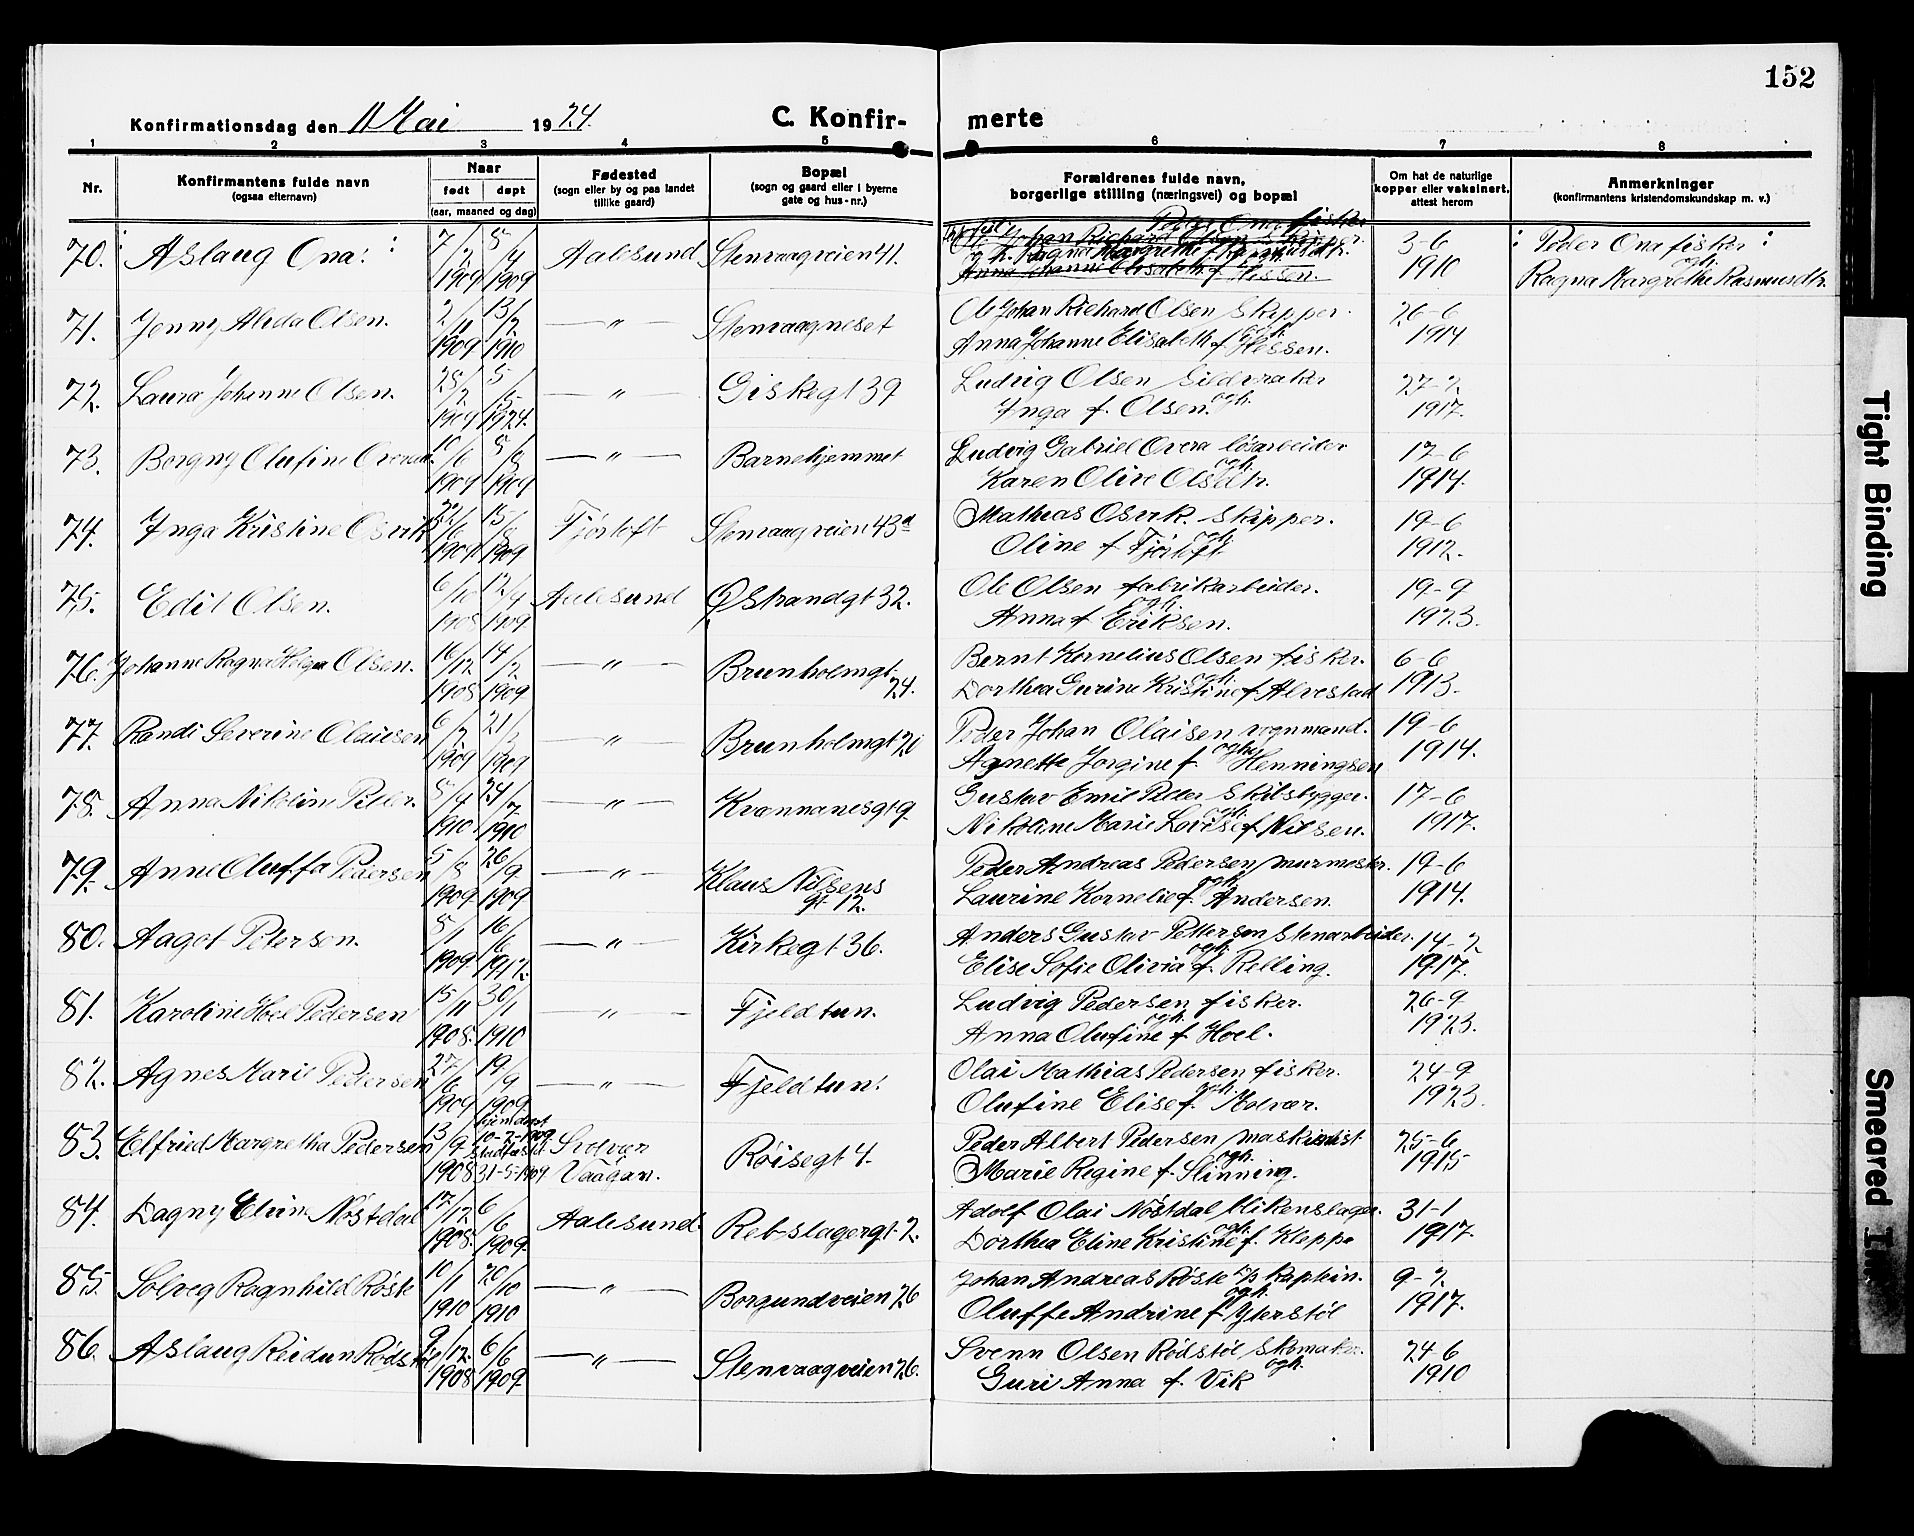 152
Konfirmationsdag den 11 Mai 1924.
C. Konfir- merte
1 2 3 4 5 6 7 8
Nr. Konfirmantens fulde navn (ogsaa efternavn) Naar født døpt (aar, maaned og dag) Fødested (sogn eller by og paa landet tillike gaard) Bopæl (sogn og gaard eller i byerne gate og hus-nr.) Forældrenes fulde navn, borgerlige stilling (næringsvei) og bopæl Om hat de naturlige kopper eller vaksinert, attest herom Anmerkninger (konfirmantens kristendomskundskap m. v.)
70. Aslaug Ona. 7/2 1909 5/4 1909 Aalesund Stenvaagveien 41. Peder Ona fisker 3-6 1910 Peder Ona fisker
Ole Johan Richard Olsen Skipper
og h. Ragna Margrethe f. Rasmusdtr.
Anna Johanne Elisabeth f. Hessen.
ogh. Ragna Margrethe Rasmusdtr.
71. Jenny Alida Olsen. 1909 13/2 1910 — " — Stenvaagneset Ole Johan Richard Olsen Skipper. 26-6 1914
ogh. Anna Johanne Elisabeth f. Hessen.
72. Laura Johanne Olsen. 1909 5/5 1924. — " — Giskegt 39 Ludvig Olsen Sildvraker 27-2 1917.
ogh. Inga f. Olsen.
73. Borgny Olufine Overaa. 10/6 1909 5/8 1909 — " — Barnehjemmet Ludvig Gabriel Overa løsarbeider 17-6 1914.
ogh. Karen Olive Olsdtr.
74. Inga Kristine Osvik 1909 15/8 1909 Fjørtoft Stenvaagveien 43a Mathias Osvik. Skipper. 19-6 1912.
ogh. Oline f. Fjørtoft.
75. Edit Olsen. 6/10 1908 12/4 1909 Aalesund Ø Strandgt 32. Ole Olsen fabrikarbeider. 19-9 1923.
ogh. Anna f. Eriksen.
76. Johanne Ragna Helga Olsen. 16/12 1908 14/2 1909 — " — Brunholmgt 24. Bernt Kornelius Olsen fisker. 6-6 1913.
ogh. Dorthea Gurine Kristine f. Alvestad
77. Randi Severine Olaisen 6/2 1909 1909 — " — Brunholmgt 20 Peder Johan Olaisen vognmand. 19-6 1914.
ogh. Agnette Jorgine f. Henningsen
78. Anna Nikoline Peder. 5/4 1910 24/7 1910 — " — Kvannanesgt 9 Gustav Emil Peder Skibsbygger. 17-6 1917.
ogh. Nikoline Marie Lovise f. Nilsen.
79. Anne Oluffa Pedersen 5/8 1909 26/9 1909 — " — Klaus Nilsens gt. 12. Peder Andreas Pedersen murmester. 19-6 1914.
ogh. Laurine Kornelie f. Andersen.
80. Aagot Peterson. 5/1 1909 16/6 1912. — " — Kirkegt 36. Anders Gustav Petterson Stenarbeider. 14-2 1917.
ogh. Elise Sofie Olivia f. Relling.
81. Karoline Hoel Pedersen 15/11 1908. 30/1 1910 — " — Fjeldtun. Ludvig Pedersen fisker. 26-9 1923.
ogh. Anna Olufine f. Hoel.
82. Agnes Marie Pedersen 27/6 1909 19/9 1909 — " — Fjeldtun. Olai Mathias Pedersen fisker. 24-9 1923.
ogh. Olufine Elise f. Molvær.
83. Elfried Margretha Pedersen 13/9 1908 hjemdøpt 10-2-1909 stadfæstet 31-5-1909 Svolvær Vaagan. Røisegt 4. Peder Albert Pedersen maskinist 25-6 1915
ogh. Marie Regine f. Slinning.
84. Dagny Eline Nøstdal 17/12 1908. 6/6 1909. Aalesund. Rebslagergt. 2. Adolf Olai Nøstdal blikenslager. 31-1 1917.
ogh. Dorthea Eline Kristine f. Kleppe
85. Solveg Ragnhild Røste 10/1 1910 20/10 1910 — " — Borgundveien 26 Johan Andreas Røste kaptein. 9-2 1917.
ogh. Oluffe Andrine f. Yterstøl
86. Aslaug Reidun Rødstøl 9/12. 1908 6/6 1909 — " — Stenvaagveien 26. Svenn Olsen Rødstøl Skomaker. 24-6 1910
ogh. Guri Anna f. Vik
Tight Binding
Smeared Ink